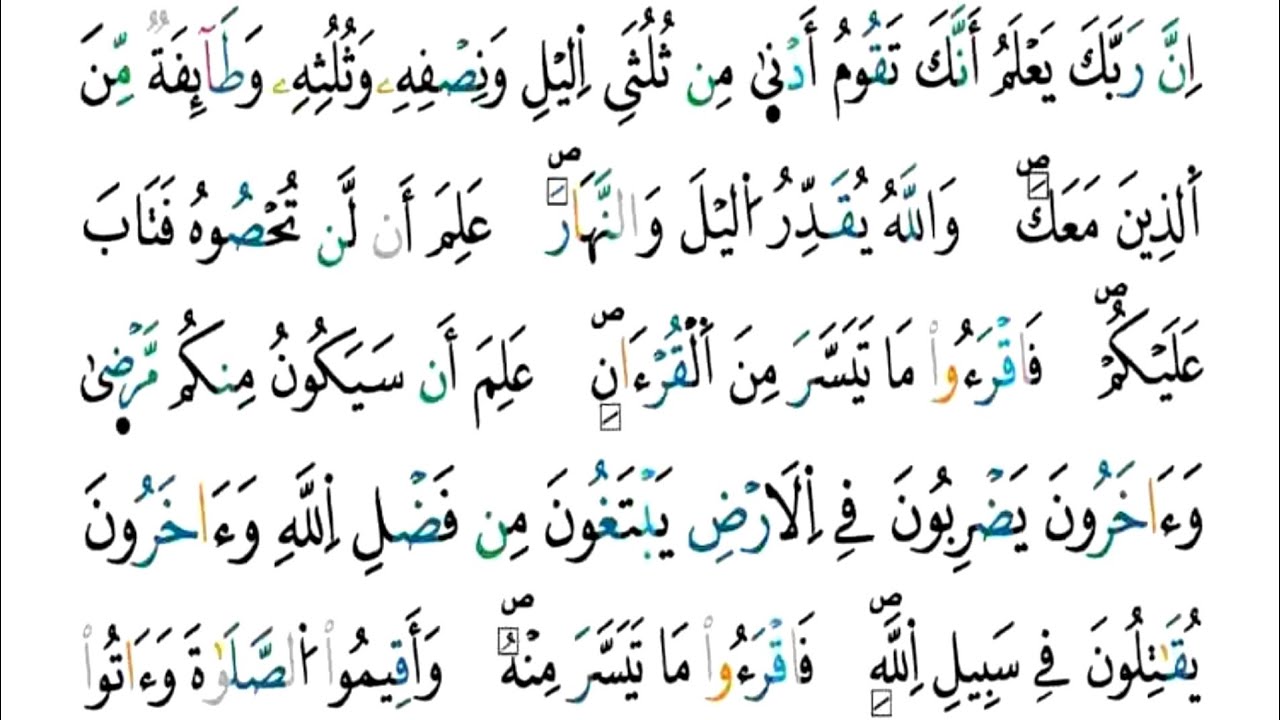 اِنَّ رَبَّكَ يَعْلَمُ أَنَّكَ تَقُومُ أَدْنىٰ مِن ثُلُثَيِ اِ۬ليْلِ وَنِصْفِهِۦ وَثُلُثِهِۦ وَطَآئِفَةٞ مِّنَ
اَ۬لذِينَ مَعَكَۖ وَاللَّهُ يُقَدِّرُ اُ۬ليْلَ وَالنَّهَارَۖ عَلِمَ أَن لَّن تُحْصُوهُ فَتَابَ
عَلَيْكُمْۖ فَاقْرَءُواْ مَا تَيَسَّرَ مِنَ اَ۬لْقُرْءَانِۖ عَلِمَ أَن سَيَكُونُ مِنكُم مَّرْضىٰ
وَءَاخَرُونَ يَضْرِبُونَ فِي اِ۬لَارْضِ يَبْتَغُونَ مِن فَضْلِ اِ۬للَّهِ وَءَاخَرُونَ
يُقَٰتِلُونَ فِي سَبِيلِ اِ۬للَّهِۖ فَاقْرَءُواْ مَا تَيَسَّرَ مِنْهُۖ وَأَقِيمُواْ اُ۬لصَّلَوٰةَ وَءَاتُواْ